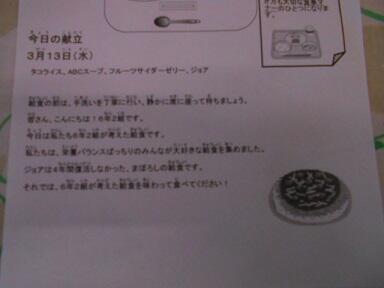 方も大切な食事マ
ナーのひとつになりま
す。
今日の献立
3月13日(水)
タコライス、ABCスープ、フルーツサイダーゼリー、ジョア
給食の前は、手洗いを丁寧に行い、静かに席に座って待ちましょう。
皆さん、こんにちは!6年2組です。
今日は私たち6年2組が考えた給食です。
私たちは、栄養バランスばっちりのみんなが大好きな給食を集めました。
ジョアは4年間復活しなかった、まぼろしの給食です。
それでは、6年2組が考えた給食を味わって食べてください!